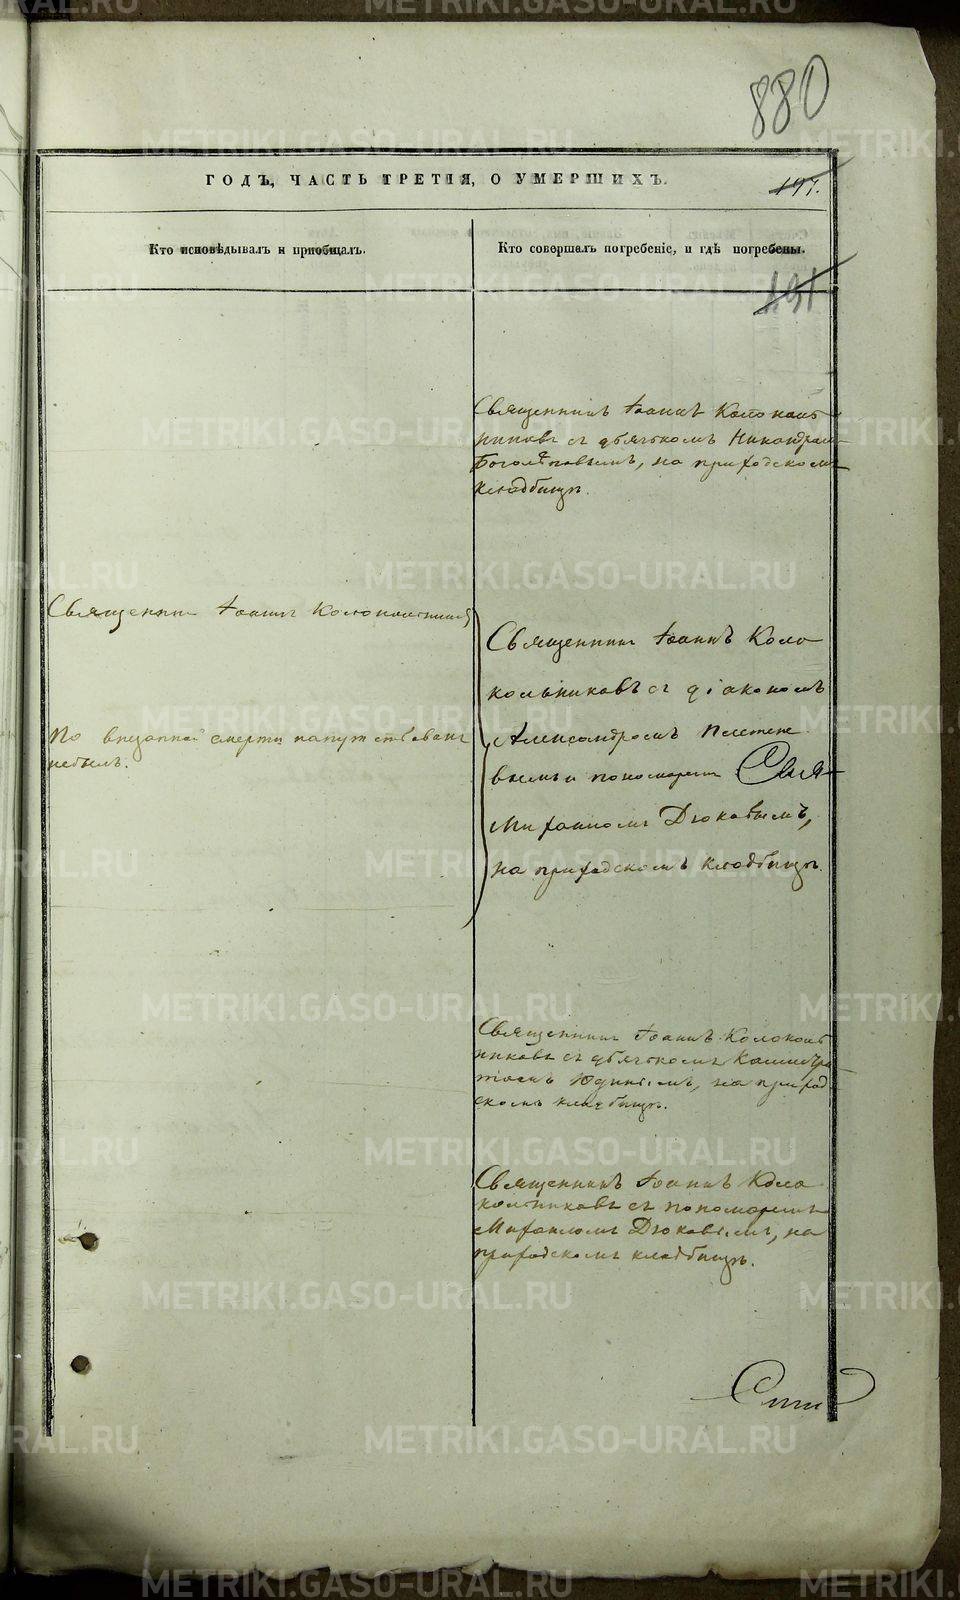 880
ГОДЪ, ЧАСТЬ ТРЕТІЯ, О УМЕРШИХЪ.
197.
Кто исповѣдывалъ и приобщалъ.
Кто совершалъ погребеніе, и гдѣ погребены.
191
Священникъ Іоаннъ Колоколь
никовъ съ дьячкомъ Никандромъ
Боголѣповымъ, на приходскомъ
кладбищѣ.
Священникъ Іоаннъ Колокольниковъ
По внезапной смерти напутствованъ
небылъ.
Священникъ Іоаннъ Коло
кольниковъ съ діакономъ
Александромъ Плетене
вымъ и пономаремъ
Михаиломъ Дюковымъ,
на приходскомъ кладбищѣ.
Священникъ Іоаннъ Колоколь
никовъ съ дьячкомъ Каллистра
томъ Юдинымъ, на приход
скомъ кладбищѣ.
Священникъ Іоаннъ Коло
кольниковъ съ пономаремъ
Михаиломъ Дюковымъ, на
приходскомъ кладбищѣ.
METRIKI.GASO-URAL.RU